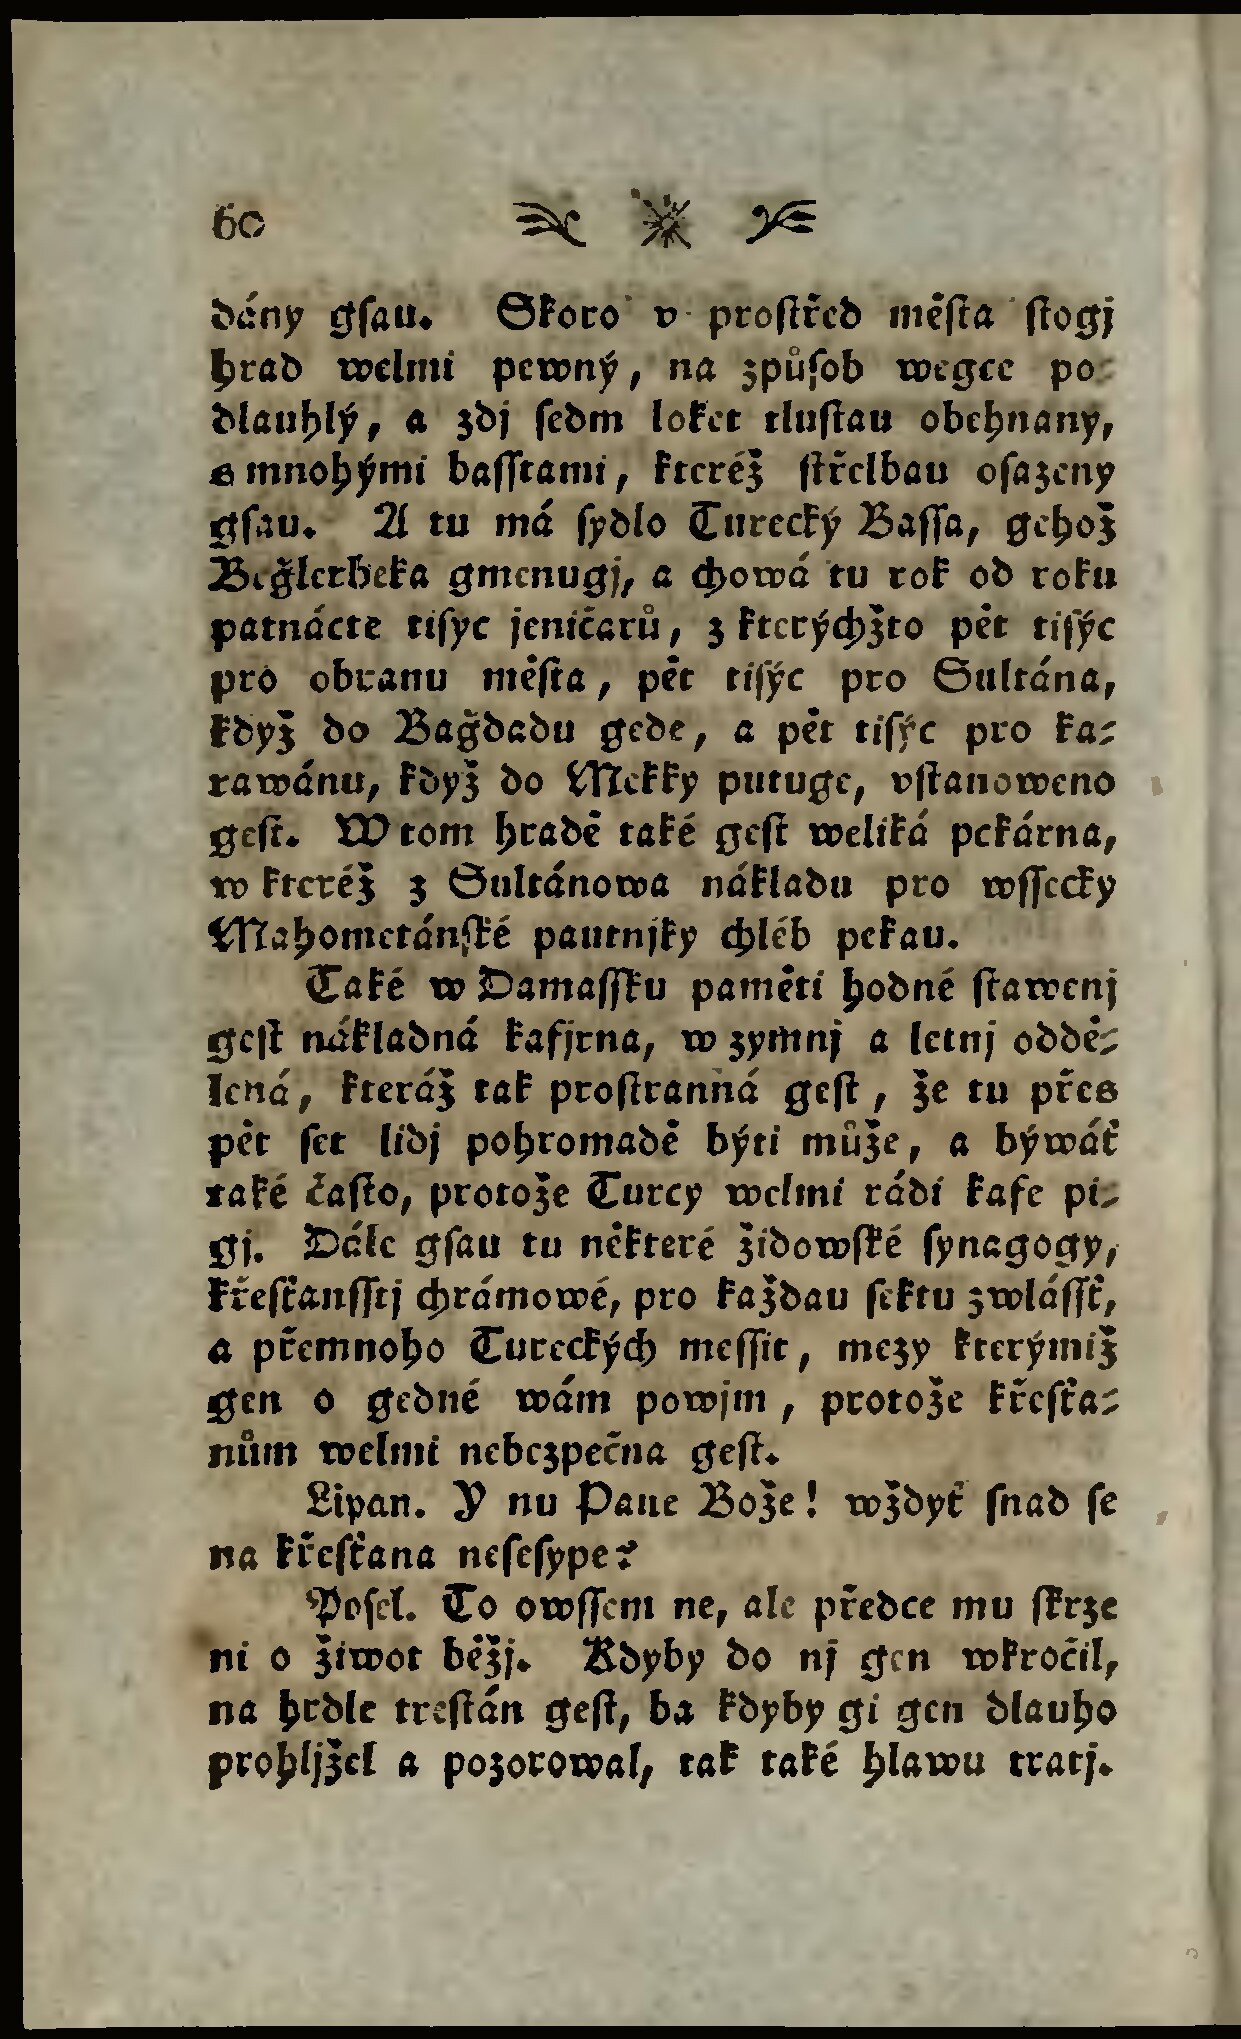 60
dány gſau. Skoro v proſtřed měſta ſtogj
hrad welmi pewný, na způſob wegce po-
dlauhlý, a zdj ſedm loket tluſtau obehnany,
s mnohými baſſtami, kteréž ſtřelbau oſazeny
gſau. A tu má ſydlo Turecký Baſſa, gehož
Beğlerbeka gmenugj, a chowá tu rok od roku
patnácte tiſyc jeničarů, z kterýchžto pět tiſýc
pro obranu měſta, pět tiſýc pro Sultána,
když do Bağdadu gede, a pět tiſýc pro ka-
rawánu, když do Mekky putuge, vſtanoweno
geſt. W tom hradě také geſt weliká pekárna,
w kteréž z Sultánowa nákladu pro wſſecky
Mahometánſké pautnjky chléb pekau.
Také w Damaſſku paměti hodné ſtawenj
geſt nákladná kafjrna, w zymnj a letnj oddě-
lená, kteráž tak proſtranná geſt, že tu přes
pět ſet lidj pohromadě býti může, a býwáť
také čaſto, protože Turcy welmi rádi kafe pi-
gj. Dále gſau tu některé židowſké ſynagogy,
křeſťanſſtj chrámowé, pro každau ſektu zwláſſť,
a přemnoho Tureckých meſſit, mezy kterýmiž
gen o gedné wám powjm, protože křeſťa-
nům welmi nebezpečna geſt.
Lipan. Y nu Pane Bože! wždyť ſnad ſe
na křeſťana neſeſype?
Poſel. To owſſem ne, ale předce mu ſkrze
ni o žiwot běžj. Kdyby do nj gen wkročil,
na hrdle treſtán geſt, ba kdyby gi gen dlauho
prohljžel a pozorowal, tak také hlawu tratj.